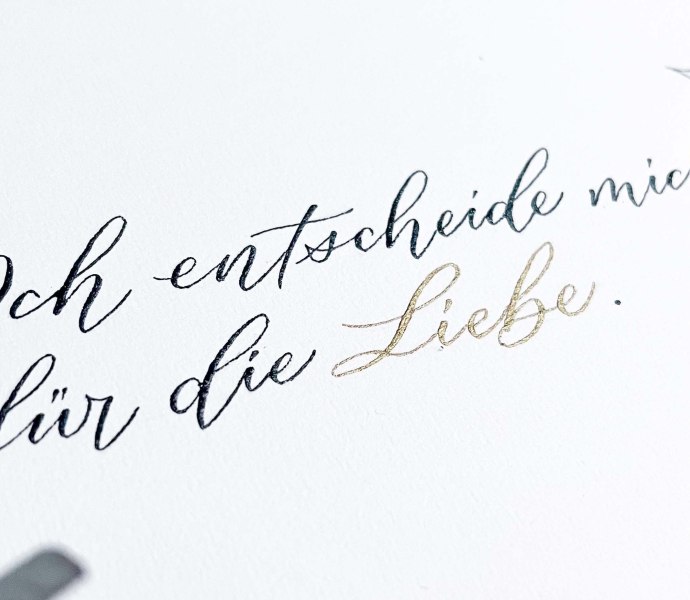 Ich entscheide mic
für die Liebe.